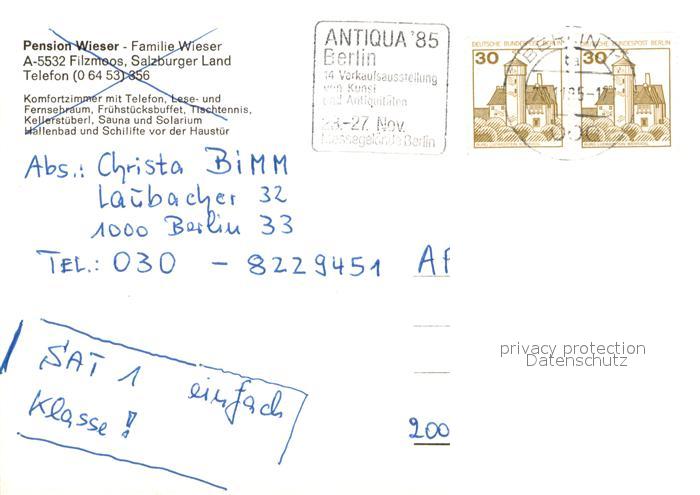 Pension Wieser - Familie Wieser
A-5532 Filzmoos, Salzburger Land
Telefon (0 64 53) 356
Komfortzimmer mit Telefon, Lese- und
Fernsehraum, Frühstücksbuffet, Tischtennis,
Kellerstüberl, Sauna und Solarium
Hallenbad und Schilifte vor der Haustür
ANTIQUA '85
Berlin
14 Verkaufsausstellung
von Kunst
und Antiquitäten
23.-27. Nov.
Messegelände Berlin
DEUTSCHE BUNDESPOST BERLIN
30
DEUTSCHE BUNDESPOST BERLIN
30
BERLIN
ta
Abs.: Christa BIMM
Laubacher 32
1000 Berlin 33
TEL.: 030 - 8229451
SAT 1 einfach
Klasse!
200
privacy protection
Datenschutz